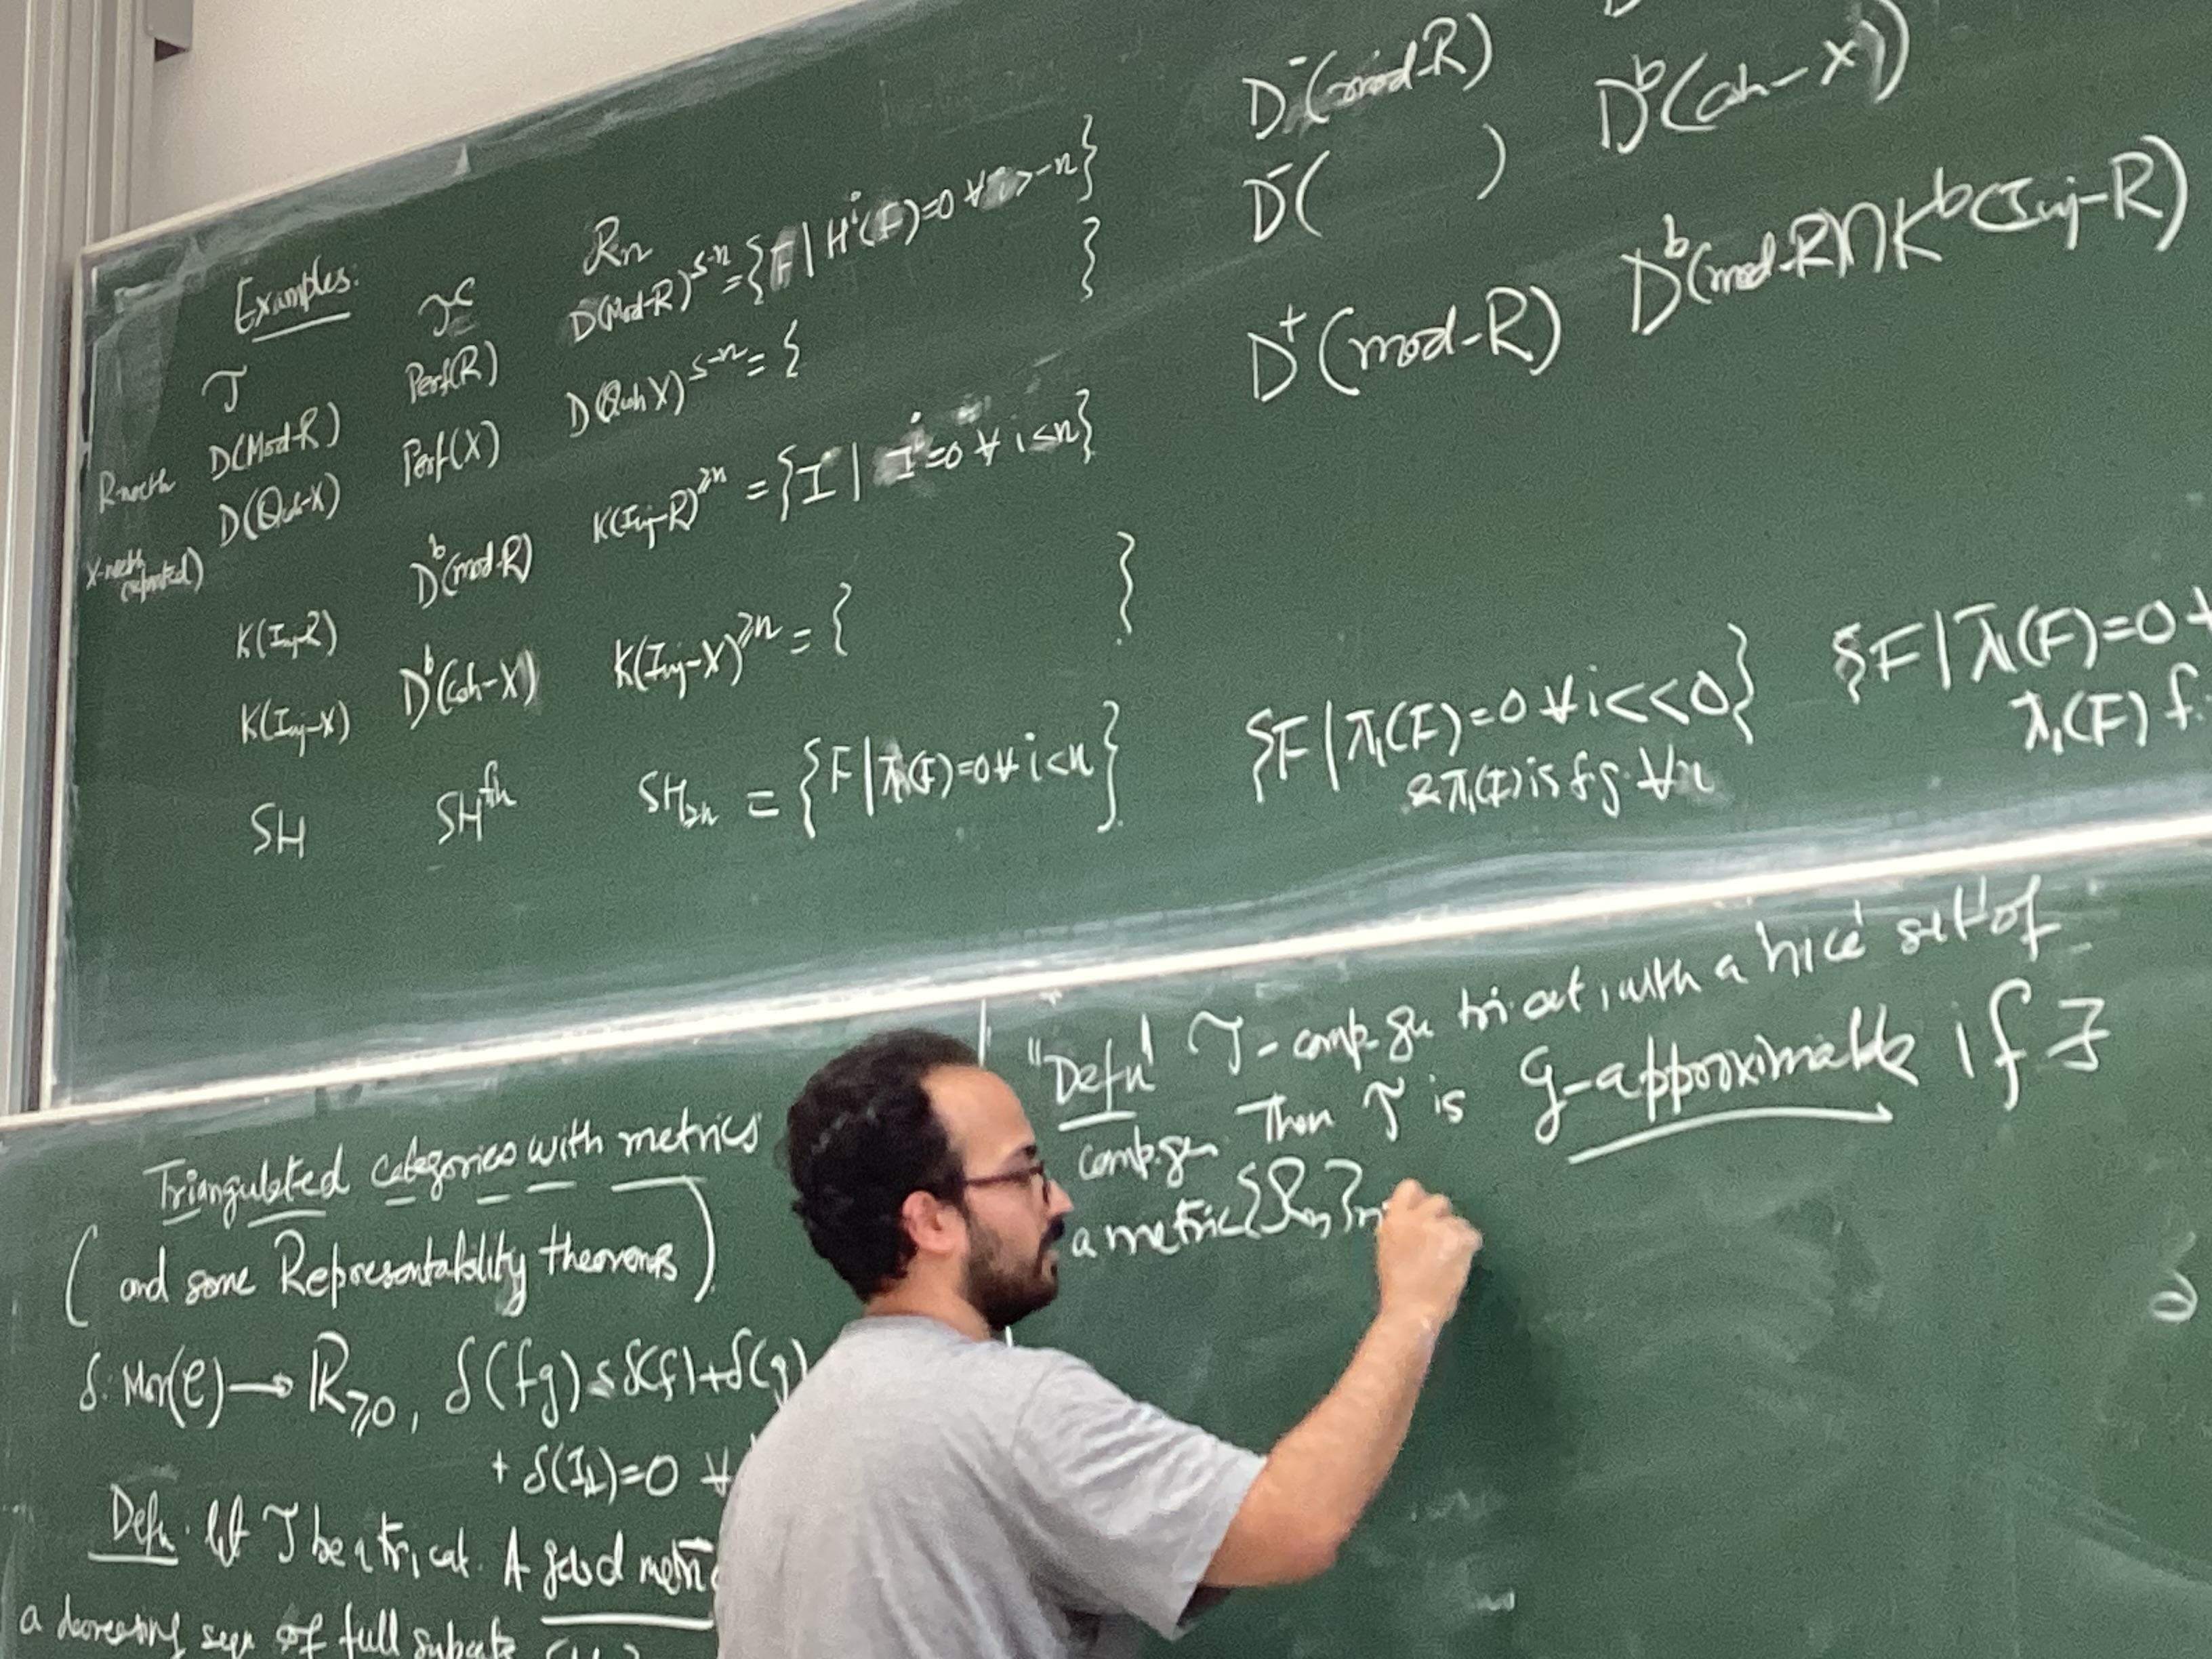 Examples:
𝒯 𝒯ᶜ ℛₙ
R-noeth D(Mod-R) Perf(R) D(Mod-R)^{≤-n} = {F | Hⁱ(F)=0 ∀ i>-n} D⁻(mod-R)
X-noeth (separated) D(Qcoh-X) Perf(X) D(Qcoh X)^{≤-n} = { } D⁻( ) Dᵇ(coh-X)
K(Inj-R) Dᵇ(mod-R) K(Inj-R)^{≥n} = {I | Iⁱ=0 ∀ i<n} D⁺(mod-R) Dᵇ(mod-R)∩Kᵇ(Inj-R)
K(Inj-X) Dᵇ(coh-X) K(Inj-X)^{≥n} = { }
SH SH^{fin} SH_{≥n} = {F | πᵢ(F)=0 ∀ i<n} {F | πᵢ(F)=0 ∀ i<<0} {F | πᵢ(F)=0
& πᵢ(F) is f.g. ∀ i πᵢ(F) f.
Triangulated categories with metrics
(and some Representability theorems)
δ: Mor(𝒞) → ℝ≥0, δ(fg) ≤ δ(f)+δ(g)
+ δ(I_d)=0 ∀
Defn. Let 𝒯 be a tri. cat. A good metric
a decreasing seqn of full subcats
"Defn" 𝒯 - comp. gen tri cat, with a 'nice' set of
comp. gen. Then 𝒯 is G-approximable if ∃
a metric {ℛₙ}ₙ